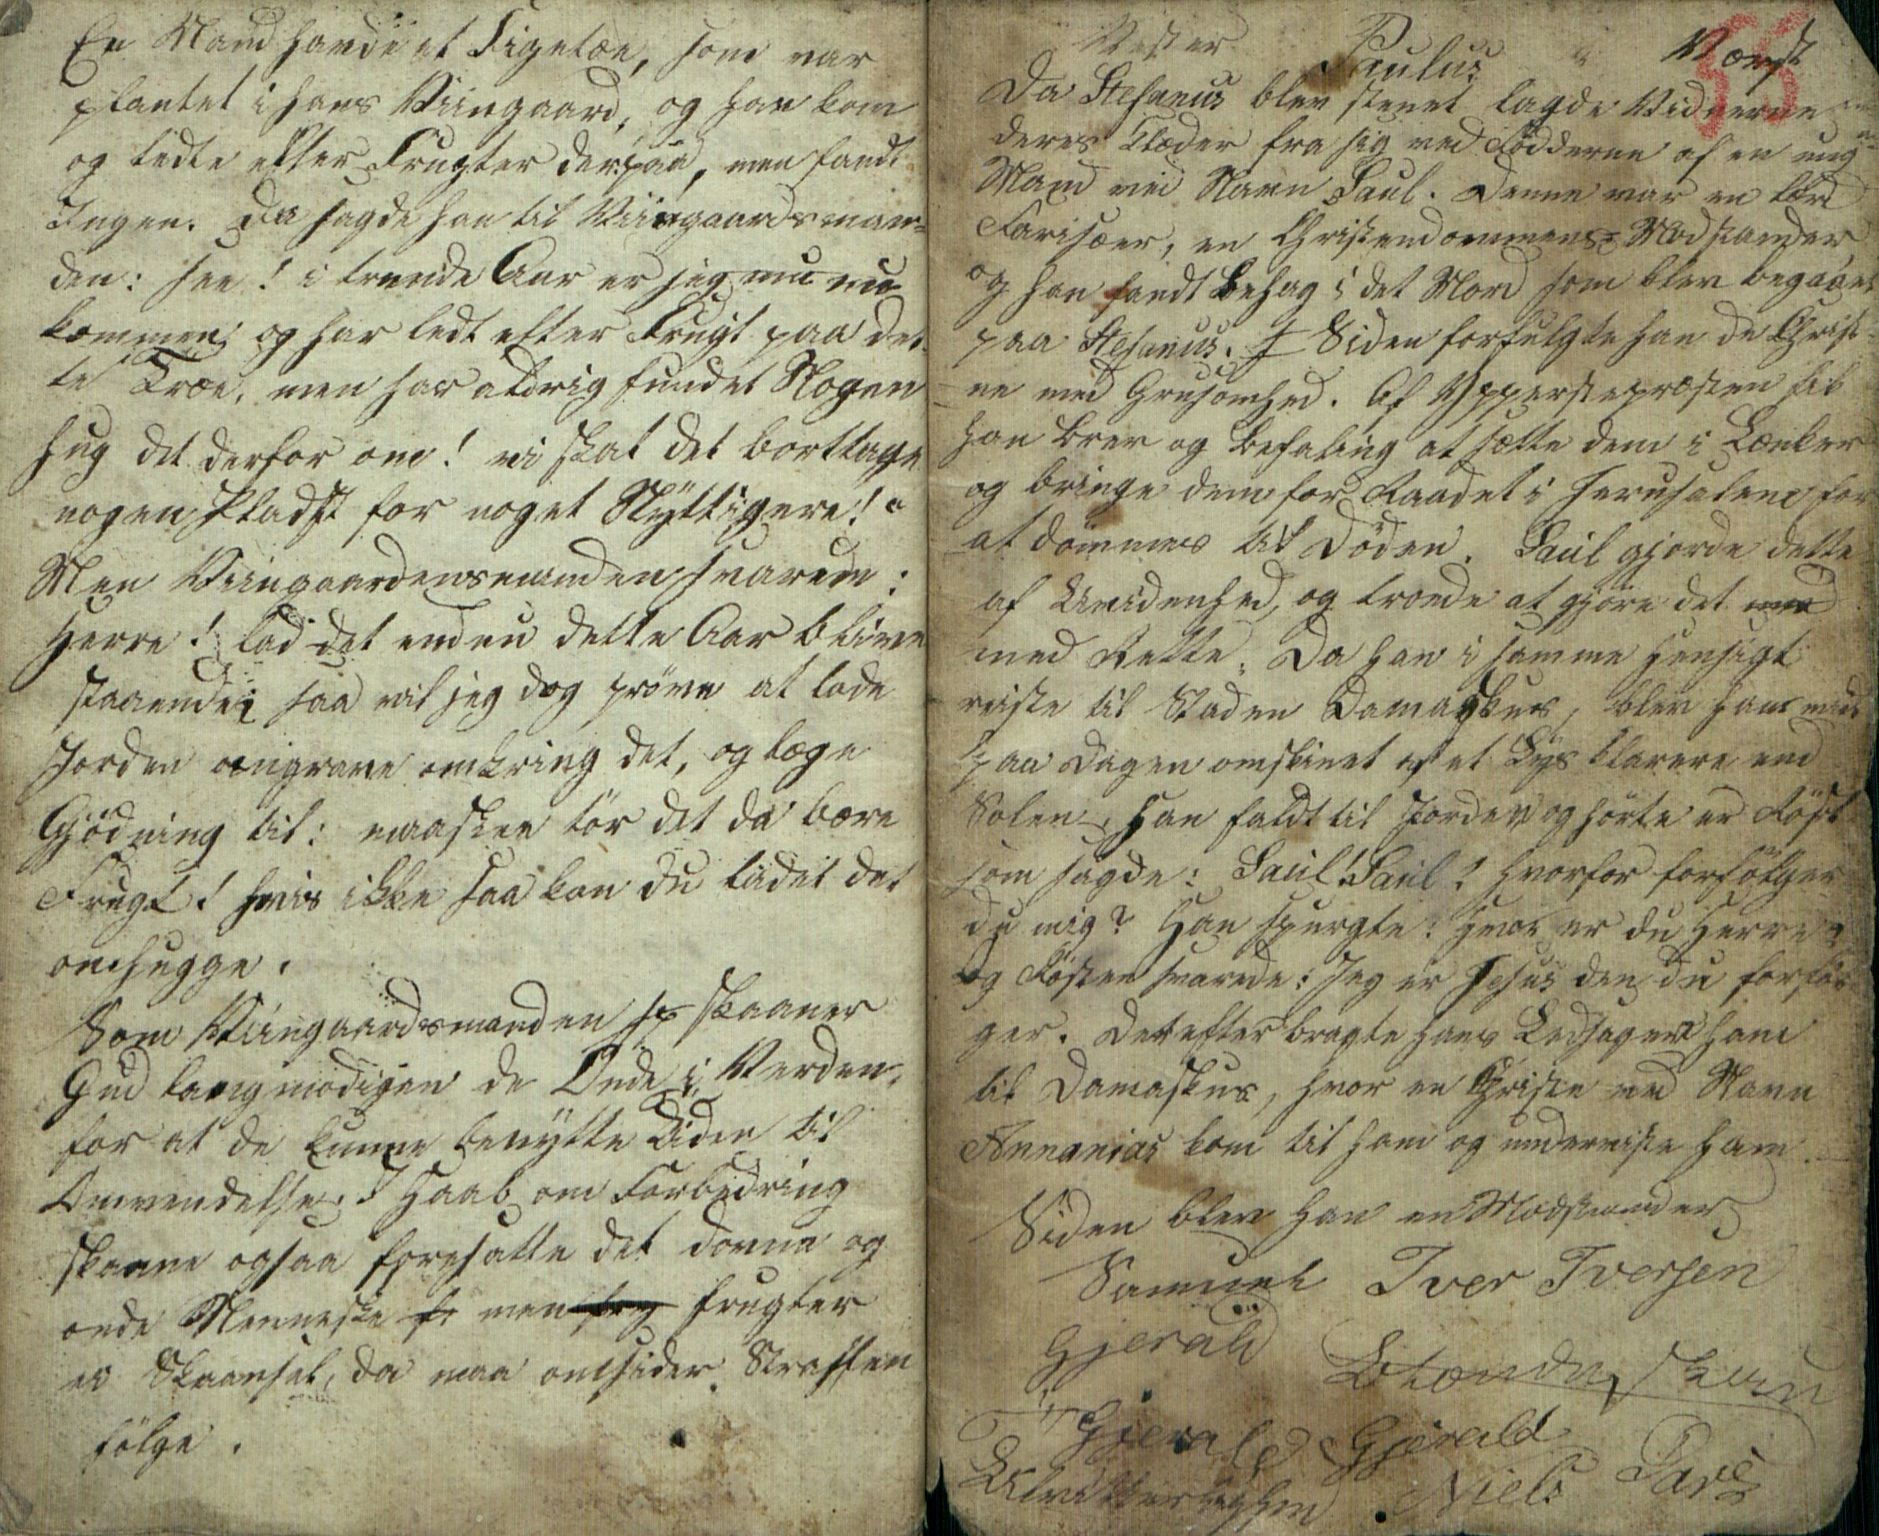 En Mand havde et Figetræ, som var
plantet i hans Viingaard, og han kom
og ledte efter Frugter derpaa, men fandt
Ingen. Da sagde han til Viingaardsman-
den: see! i trende Aar er jeg nu nu
kommen og har ledt efter Frugt paa det-
te Træe, men har aldrig fundet Nogen
hug det derfor om! vi skal det borttage
nogen Pladst for noget Nyttigere!
Men Viingaardensmanden svarede:
Herre! lad det endnu dette Aar blive
staaende; saa vil jeg dog pröve at lade
Jorden omgrave omkring det, og læge
Gjödning til: maaskee tör det da bære
Frugt! hvis ikke saa kan du ladet det
omhugge.
Som Viingaardsmanden skaaner
Gud langmodigen de Onde i Verden,
for at de kunne benytte Tiden til
Omvendelse. I Haab om Forbedring
skaane ogsaa foresatte det dovne og
onde Menneske men frugter
ei Skaansel, da maa omsider Straffen
fölge.
Vester Paulus
55
Da Stefanus blev stenet lagde Vidnerne
deres Klæder fra sig ved Födderne af en ung
Mand ved Navn Saul. Denne var en lærd
Farisæer, en Christendommens Modstander
og han fandt Behag i det Mord som blev begaaet
paa Stefanus. Siden forfulgte han de Christ-
ne med Grusomhed. Af Ypperstepræsten fik
han Brev og Befaling at sætte dem i Lænker
og bringe dem for Raadet i Jerusalem for
at dömmes til Döden. Saul gjorde dette
af Uvidenhed, og troede at gjöre det med
med Rette. Da han i samme Hensigt
reiste til Staden Damaskus, blev han midt
paa Dagen omskinet af et Lys klarere end
Solen. Han faldt til Jorden og hörte en Röst
som sagde: Saul! Saul! hvorfor forfölger
du mig? Han spurgte: hvo er du Herre?
og Rösten svarede: Jeg er Jesus den du forföl-
ger. Derefter bragte hans Ledsagere ham
til Damaskus, hvor en Christen ved Navn
Annanias kom til ham og underviste ham.
Siden blev han en Modstander
Samuel Iver Iversen
Gjerald
Gjerald Gjerald
Niels Lars